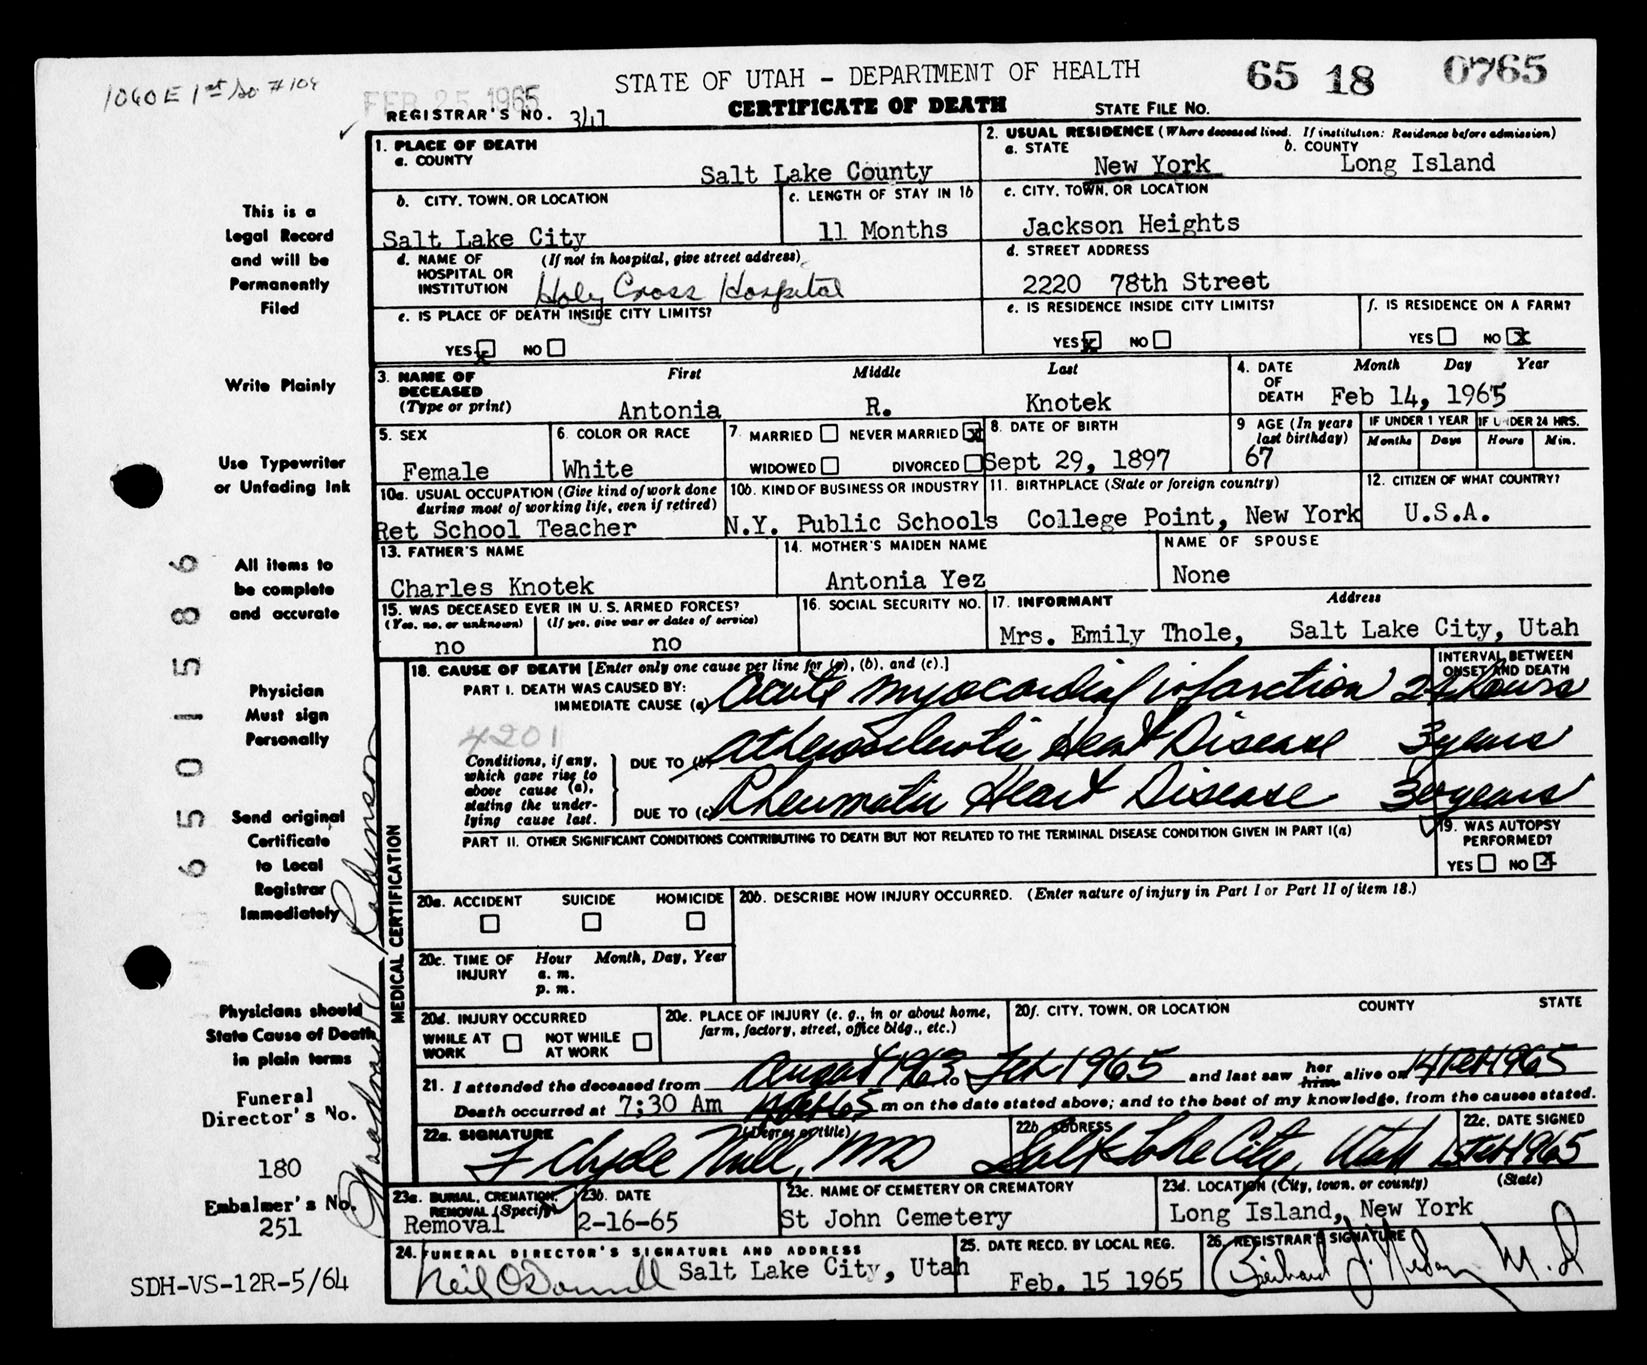 1060 E 1st So #104
FEB 25 1965
STATE OF UTAH - DEPARTMENT OF HEALTH
65 18 0765
REGISTRAR'S NO.
CERTIFICATE OF DEATH
STATE FILE NO.
1. PLACE OF DEATH
a. COUNTY
Salt Lake County
2. USUAL RESIDENCE (Where deceased lived. If institution: Residence before admission)
a. STATE
New York
b. COUNTY
Long Island
b. CITY, TOWN, OR LOCATION
Salt Lake City
c. LENGTH OF STAY IN 1b
11 Months
c. CITY, TOWN, OR LOCATION
Jackson Heights
d. NAME OF HOSPITAL OR INSTITUTION
(If not in hospital, give street address)
Holy Cross Hospital
d. STREET ADDRESS
2220 78th Street
e. IS PLACE OF DEATH INSIDE CITY LIMITS?
YES x NO
e. IS RESIDENCE INSIDE CITY LIMITS?
YES x NO
f. IS RESIDENCE ON A FARM?
YES NO x
3. NAME OF DECEASED (Type or print)
First Middle Last
Antonia R. Knotek
4. DATE OF DEATH
Month Day Year
Feb 14, 1965
5. SEX
Female
6. COLOR OR RACE
White
7. MARRIED NEVER MARRIED x
WIDOWED DIVORCED
8. DATE OF BIRTH
Sept 29, 1897
9 AGE (In years last birthday)
67
IF UNDER 1 YEAR
Months Days
IF UNDER 24 HRS.
Hours Min.
10a. USUAL OCCUPATION (Give kind of work done during most of working life, even if retired)
Ret School Teacher
10b. KIND OF BUSINESS OR INDUSTRY
N.Y. Public Schools
11. BIRTHPLACE (State or foreign country)
College Point, New York
12. CITIZEN OF WHAT COUNTRY?
U.S.A.
13. FATHER'S NAME
Charles Knotek
14. MOTHER'S MAIDEN NAME
Antonia Yez
NAME OF SPOUSE
None
15. WAS DECEASED EVER IN U.S. ARMED FORCES?
(Yes, no, or unknown) (If yes, give war or dates of service)
no no
16. SOCIAL SECURITY NO.
17. INFORMANT Address
Mrs. Emily Thole, Salt Lake City, Utah
18. CAUSE OF DEATH [Enter only one cause per line for (a), (b), and (c).]
INTERVAL BETWEEN ONSET AND DEATH
PART I. DEATH WAS CAUSED BY:
IMMEDIATE CAUSE (a) Acute myocardial infarction 24 hours
4201
Conditions, if any, which gave rise to above cause (a), stating the underlying cause last.
DUE TO (b) Atherosclerotic Heart Disease 3 years
DUE TO (c) Rheumatic Heart Disease 30 years
PART II. OTHER SIGNIFICANT CONDITIONS CONTRIBUTING TO DEATH BUT NOT RELATED TO THE TERMINAL DISEASE CONDITION GIVEN IN PART I(a)
19. WAS AUTOPSY PERFORMED?
YES NO x
20a. ACCIDENT SUICIDE HOMICIDE
20b. DESCRIBE HOW INJURY OCCURRED. (Enter nature of injury in Part I or Part II of item 18.)
20c. TIME OF INJURY
Hour Month, Day, Year
a. m.
p. m.
20d. INJURY OCCURRED
WHILE AT WORK NOT WHILE AT WORK
20e. PLACE OF INJURY (e. g., in or about home, farm, factory, street, office bldg., etc.)
20f. CITY, TOWN, OR LOCATION COUNTY STATE
21. I attended the deceased from August 1963 to Feb 1965 and last saw her him alive on 14 Feb 1965
Death occurred at 7:30 Am 14 Feb 65 m on the date stated above; and to the best of my knowledge, from the causes stated.
22a. SIGNATURE (Degree or title)
F Clyde Null, MD
22b ADDRESS
Salt Lake City, Utah
22c. DATE SIGNED
15 Feb 1965
23a. BURIAL, CREMATION, REMOVAL (Specify)
Removal
23b. DATE
2-16-65
23c. NAME OF CEMETERY OR CREMATORY
St John Cemetery
23d. LOCATION (City, town, or county) (State)
Long Island, New York
24. FUNERAL DIRECTOR'S SIGNATURE AND ADDRESS
Neil O'Donnell Salt Lake City, Utah
25. DATE RECD. BY LOCAL REG.
Feb. 15 1965
26. REGISTRAR'S SIGNATURE
M.D
MEDICAL CERTIFICATION
This is a
Legal Record
and will be
Permanently
Filed
Write Plainly
Use Typewriter
or Unfading Ink
All items to
be complete
and accurate
Physician
Must sign
Personally
Send original
Certificate
to Local
Registrar
Immediately
Physicians should
State Cause of Death
in plain terms
Funeral
Director's No.
180
Embalmer's No.
251
SDH-VS-12R-5/64
65015586
Robinson